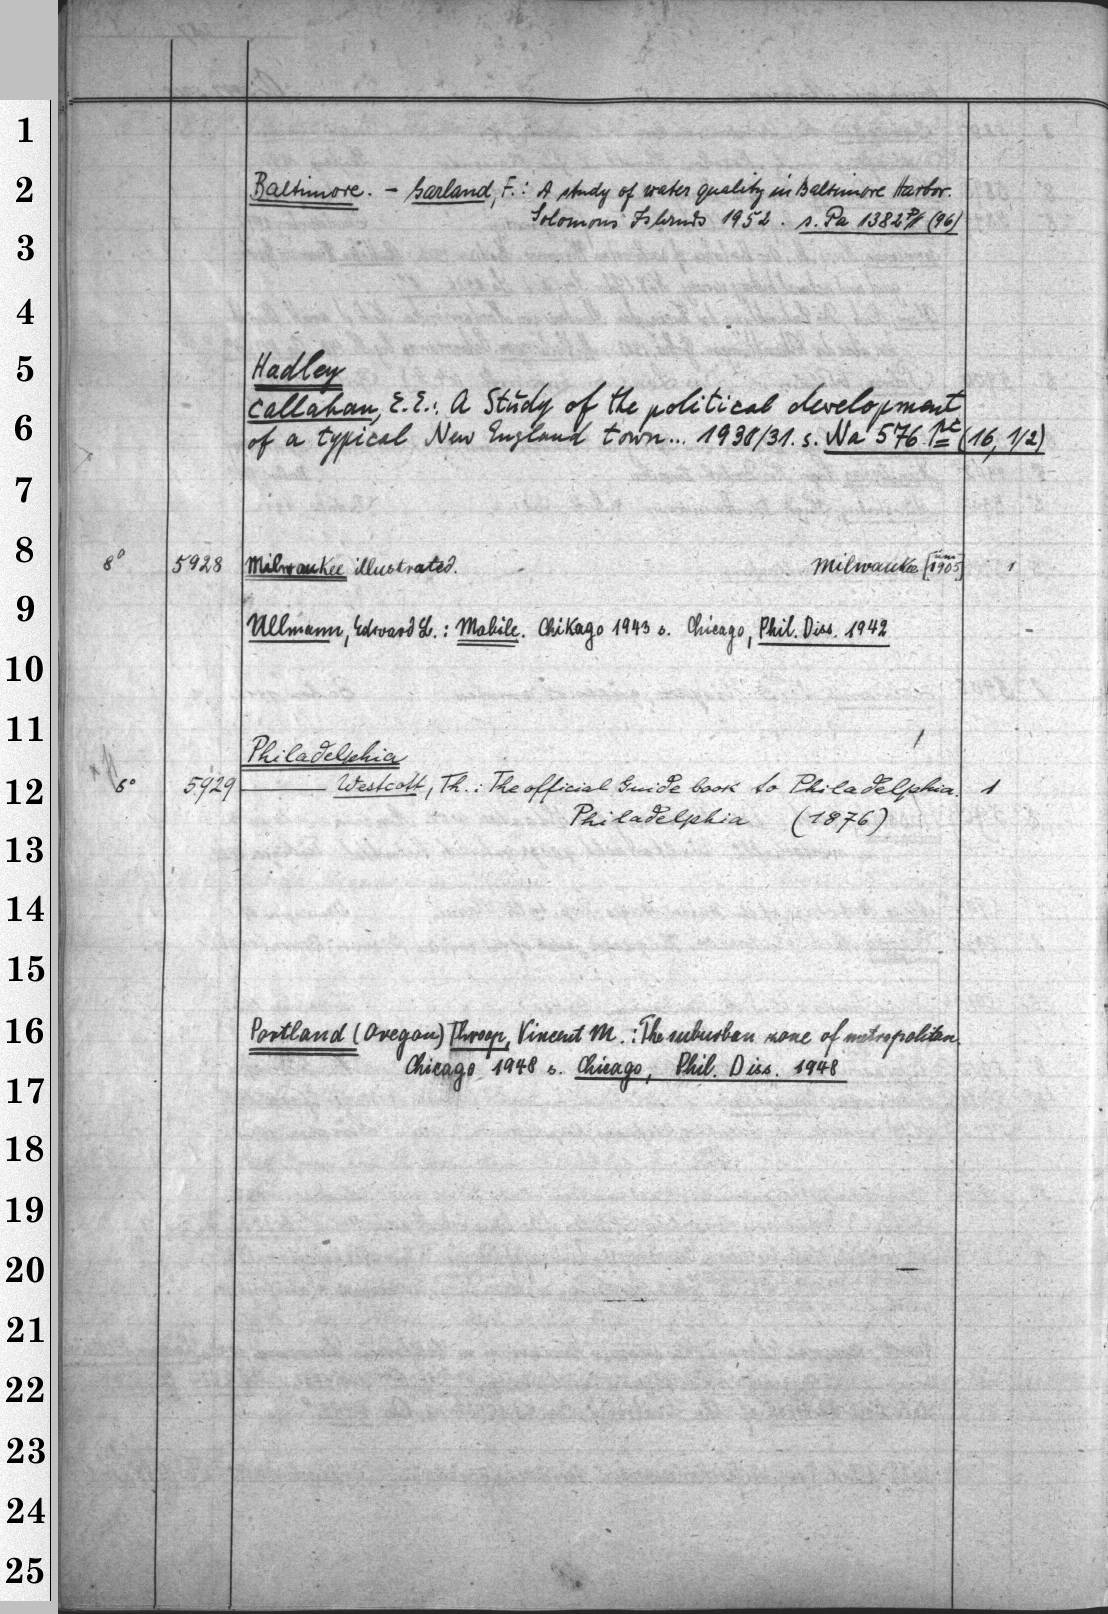 1
2
3
4
5
6
7
8
9
10
11
12
13
14
15
16
17
18
19
20
21
22
23
24
25
Baltimore. - Garland, F.: A study of water quality in Baltimore Harbor.
Solomons Islands 1952. s. Pa 1382 (96)
Hadley
Callahan, E.E.: A Study of the political development
of a typical New England town... 1930/31. s. Na 576 (16, 1/2)
8° 5928 Milwaukee illustrated. Milwaukee [um 1905] 1
Ullmann, Edward L.: Mobile. Chikago 1943 s. Chicago, Phil. Diss. 1942 -
Philadelphia
8° 5929 — Westcott, Th.: The official Guide book to Philadelphia. 1
Philadelphia (1876)
Portland (Oregon) Throop, Vincent M.: The suburban zone of metropolitan.
Chicago 1948 s. Chicago, Phil. Diss. 1948